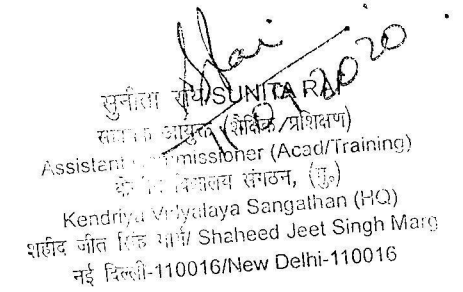 11/09/2020
सुनीता रॉय/SUNITA RAI
आयुक्त (शैक्षिक/प्रशिक्षण)
Assistant Commissioner (Acad/Training)
संगठन, (मु॰)
Kendriya Vidyalaya Sangathan (HQ)
शहीद जीत सिंह मार्ग/ Shaheed Jeet Singh Marg
नई दिल्ली-110016/New Delhi-110016